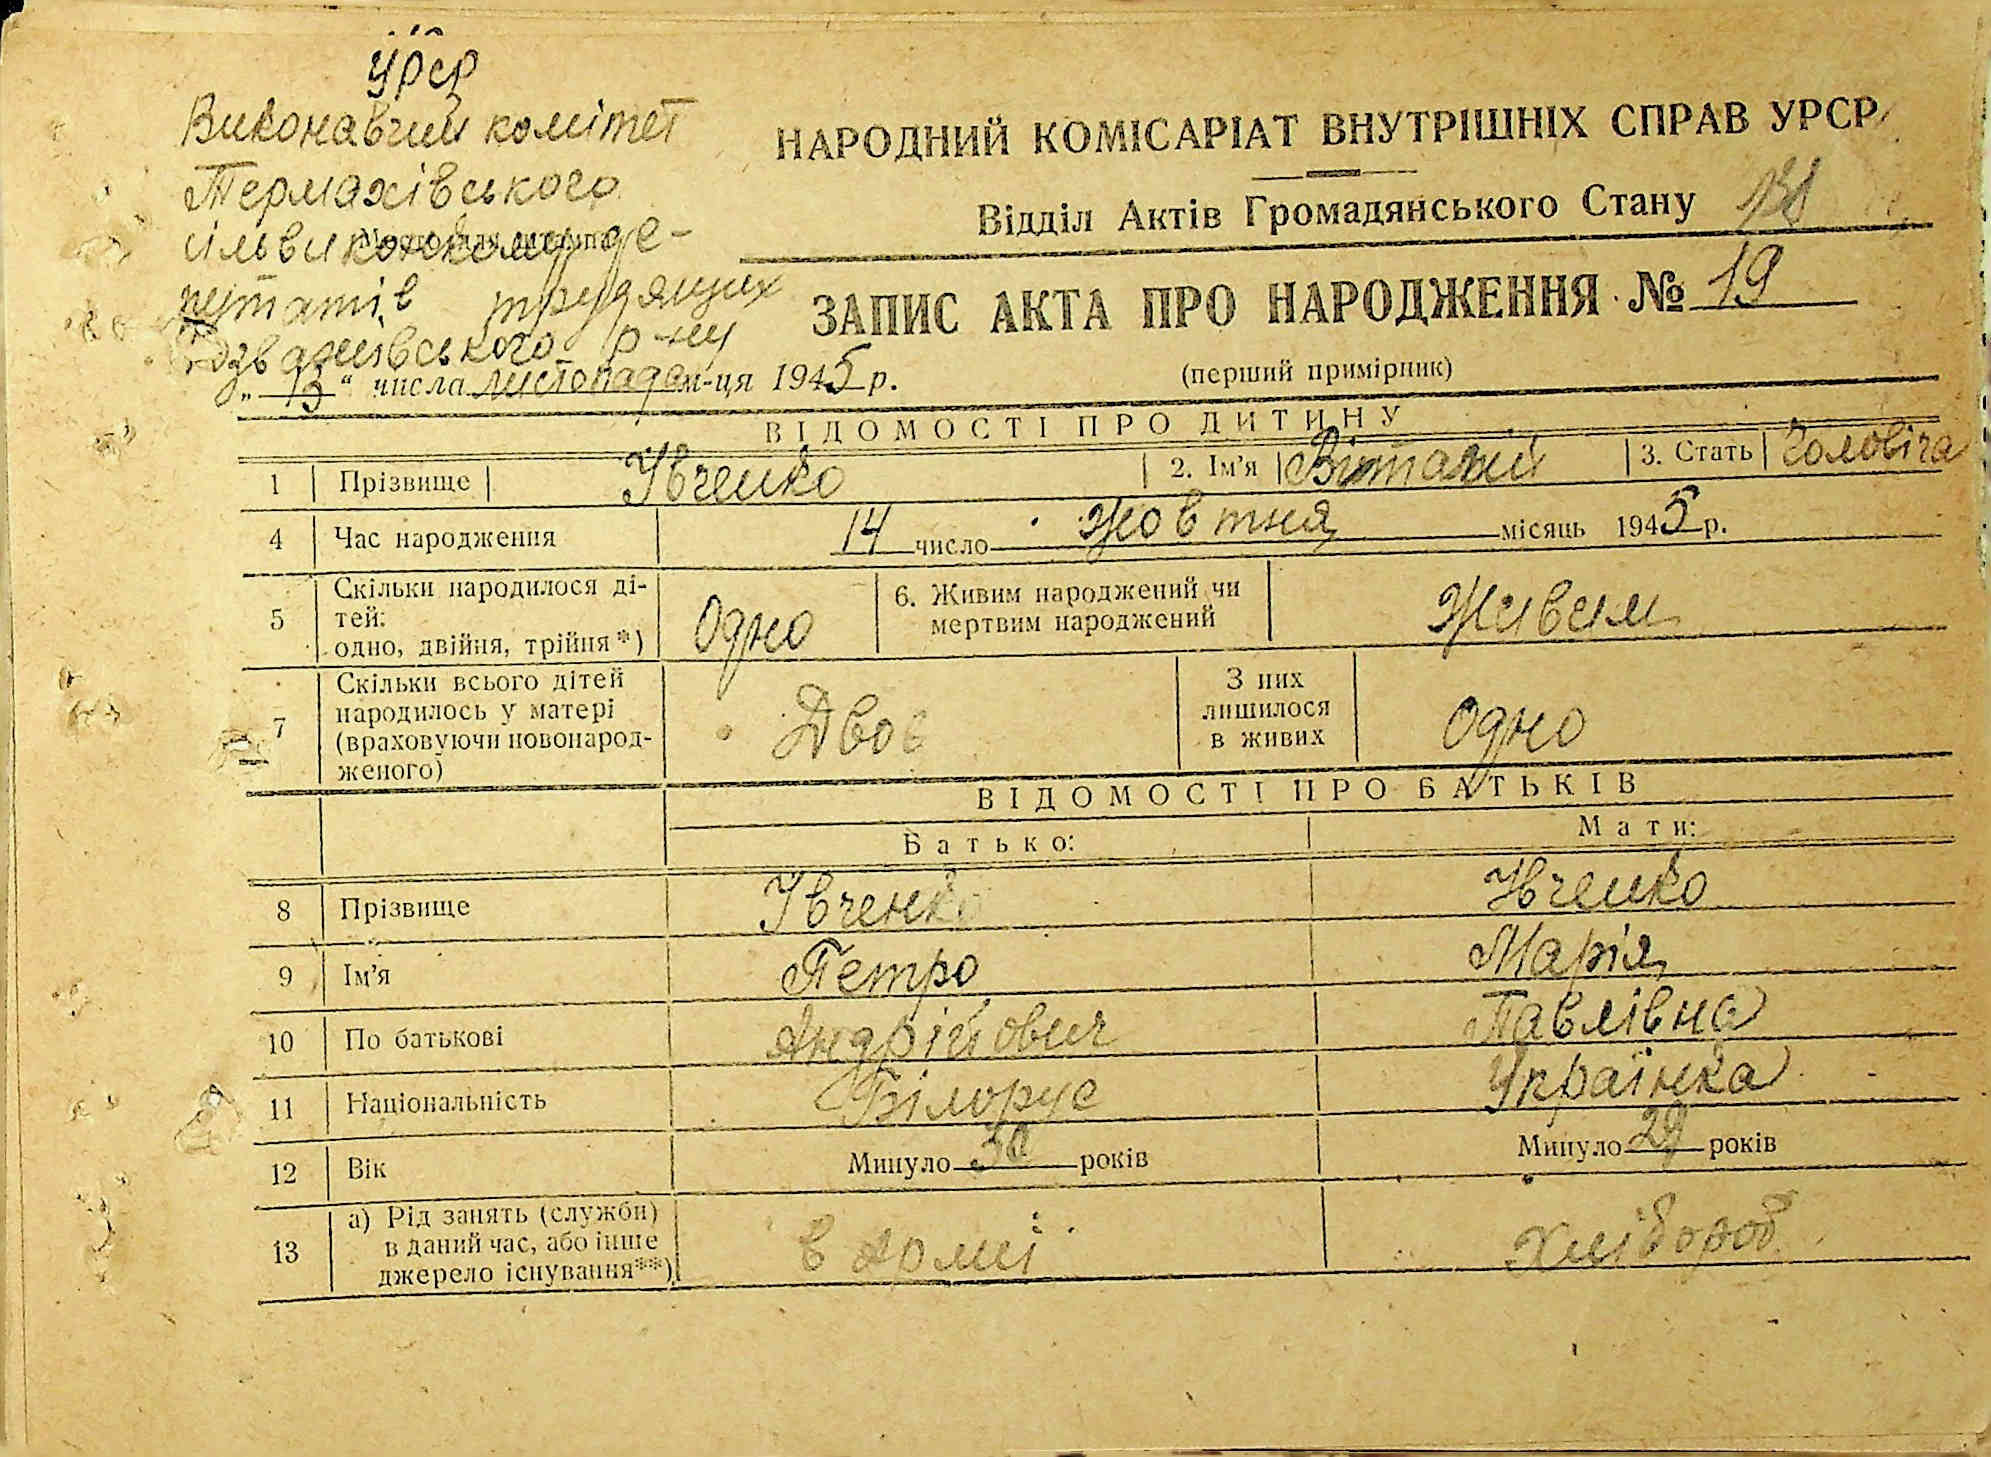 УРСР
Виконавчий комітет
Термахівського
сільвиконкому де-
путатів трудящих
р-ну
„ 13 “ числа листопада м-ця 1945 р.
НАРОДНИЙ КОМІСАРІАТ ВНУТРІШНІХ СПРАВ УРСР
Відділ Актів Громадянського Стану
ЗАПИС АКТА ПРО НАРОДЖЕННЯ № 19
(перший примірник)
ВІДОМОСТІ ПРО ДИТИНУ
1 Прізвище Івченко 2. Ім'я Віталий 3. Стать Чоловіча
4 Час народження 14 число Жовтня місяць 1945 р.
5 Скільки народилося ді-
тей:
одно, двійня, трійня*) Одно 6. Живим народжений чи
мертвим народжений Живим
7 Скільки всього дітей
народилось у матері
(враховуючи новонарод-
женого) Двоє З них
лишилося
в живих Одно
ВІДОМОСТІ ПРО БАТЬКІВ
Батько: Мати:
8 Прізвище Івченко Івченко
9 Ім'я Петро Марія
10 По батькові Андрійович Павлівна
11 Національність Білорус Українка
12 Вік Минуло 30 років Минуло 29 років
13 а) Рід занять (служби)
в даний час, або інше
джерело існування**) в Армії Хлібороб